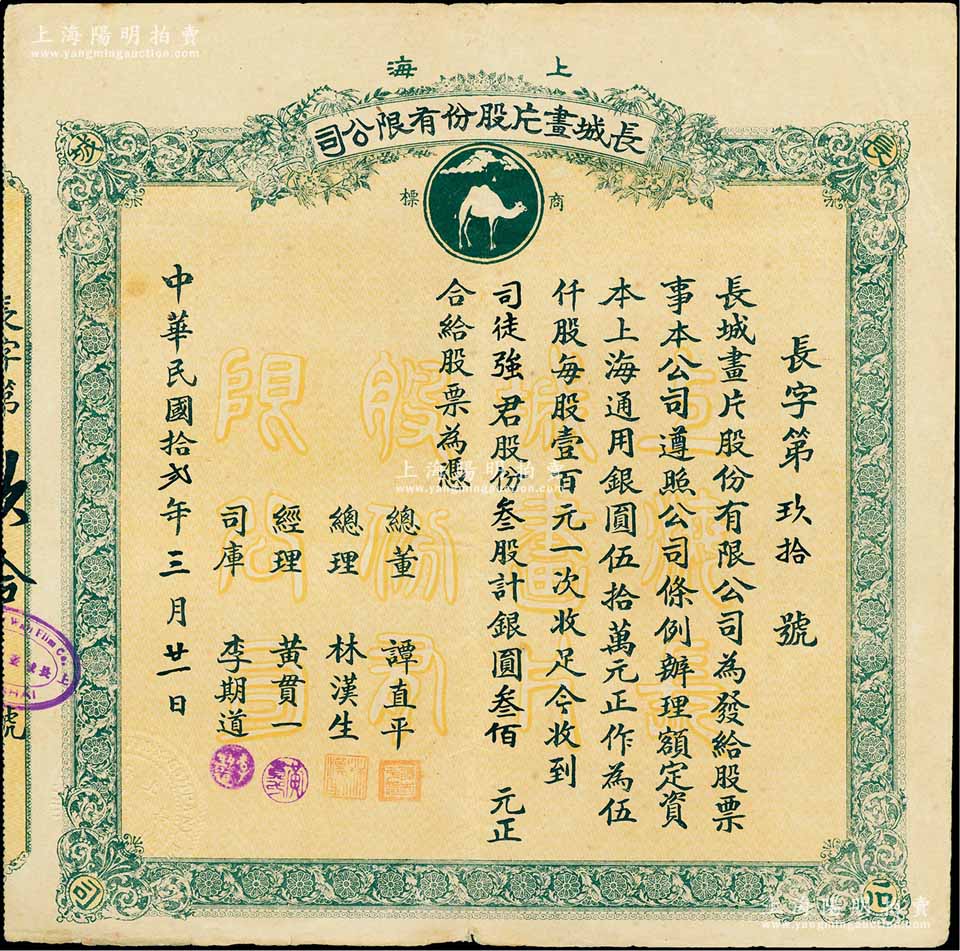 上海陽明拍賣
www.yangmingauction.com
上海
長城畫片股份有限公司
商標
長城
公司
長字第玖拾號
長城畫片股份有限公司為發給股票
事本公司遵照公司條例辦理額定資
本上海通用銀圓伍拾萬元正作為伍
仟股每股壹百元一次收足今收到
司徒強君股份叁股計銀圓叁佰元正
合給股票為憑
總董 譚直平
總理 林漢生
經理 黃貫一
司庫 李期道
中華民國拾弍年三月廿一日
上海陽明拍賣
www.yangmingauction.com
長字第
號
Wall Film Co.
上海陽明拍賣
www.yangmingauction.com